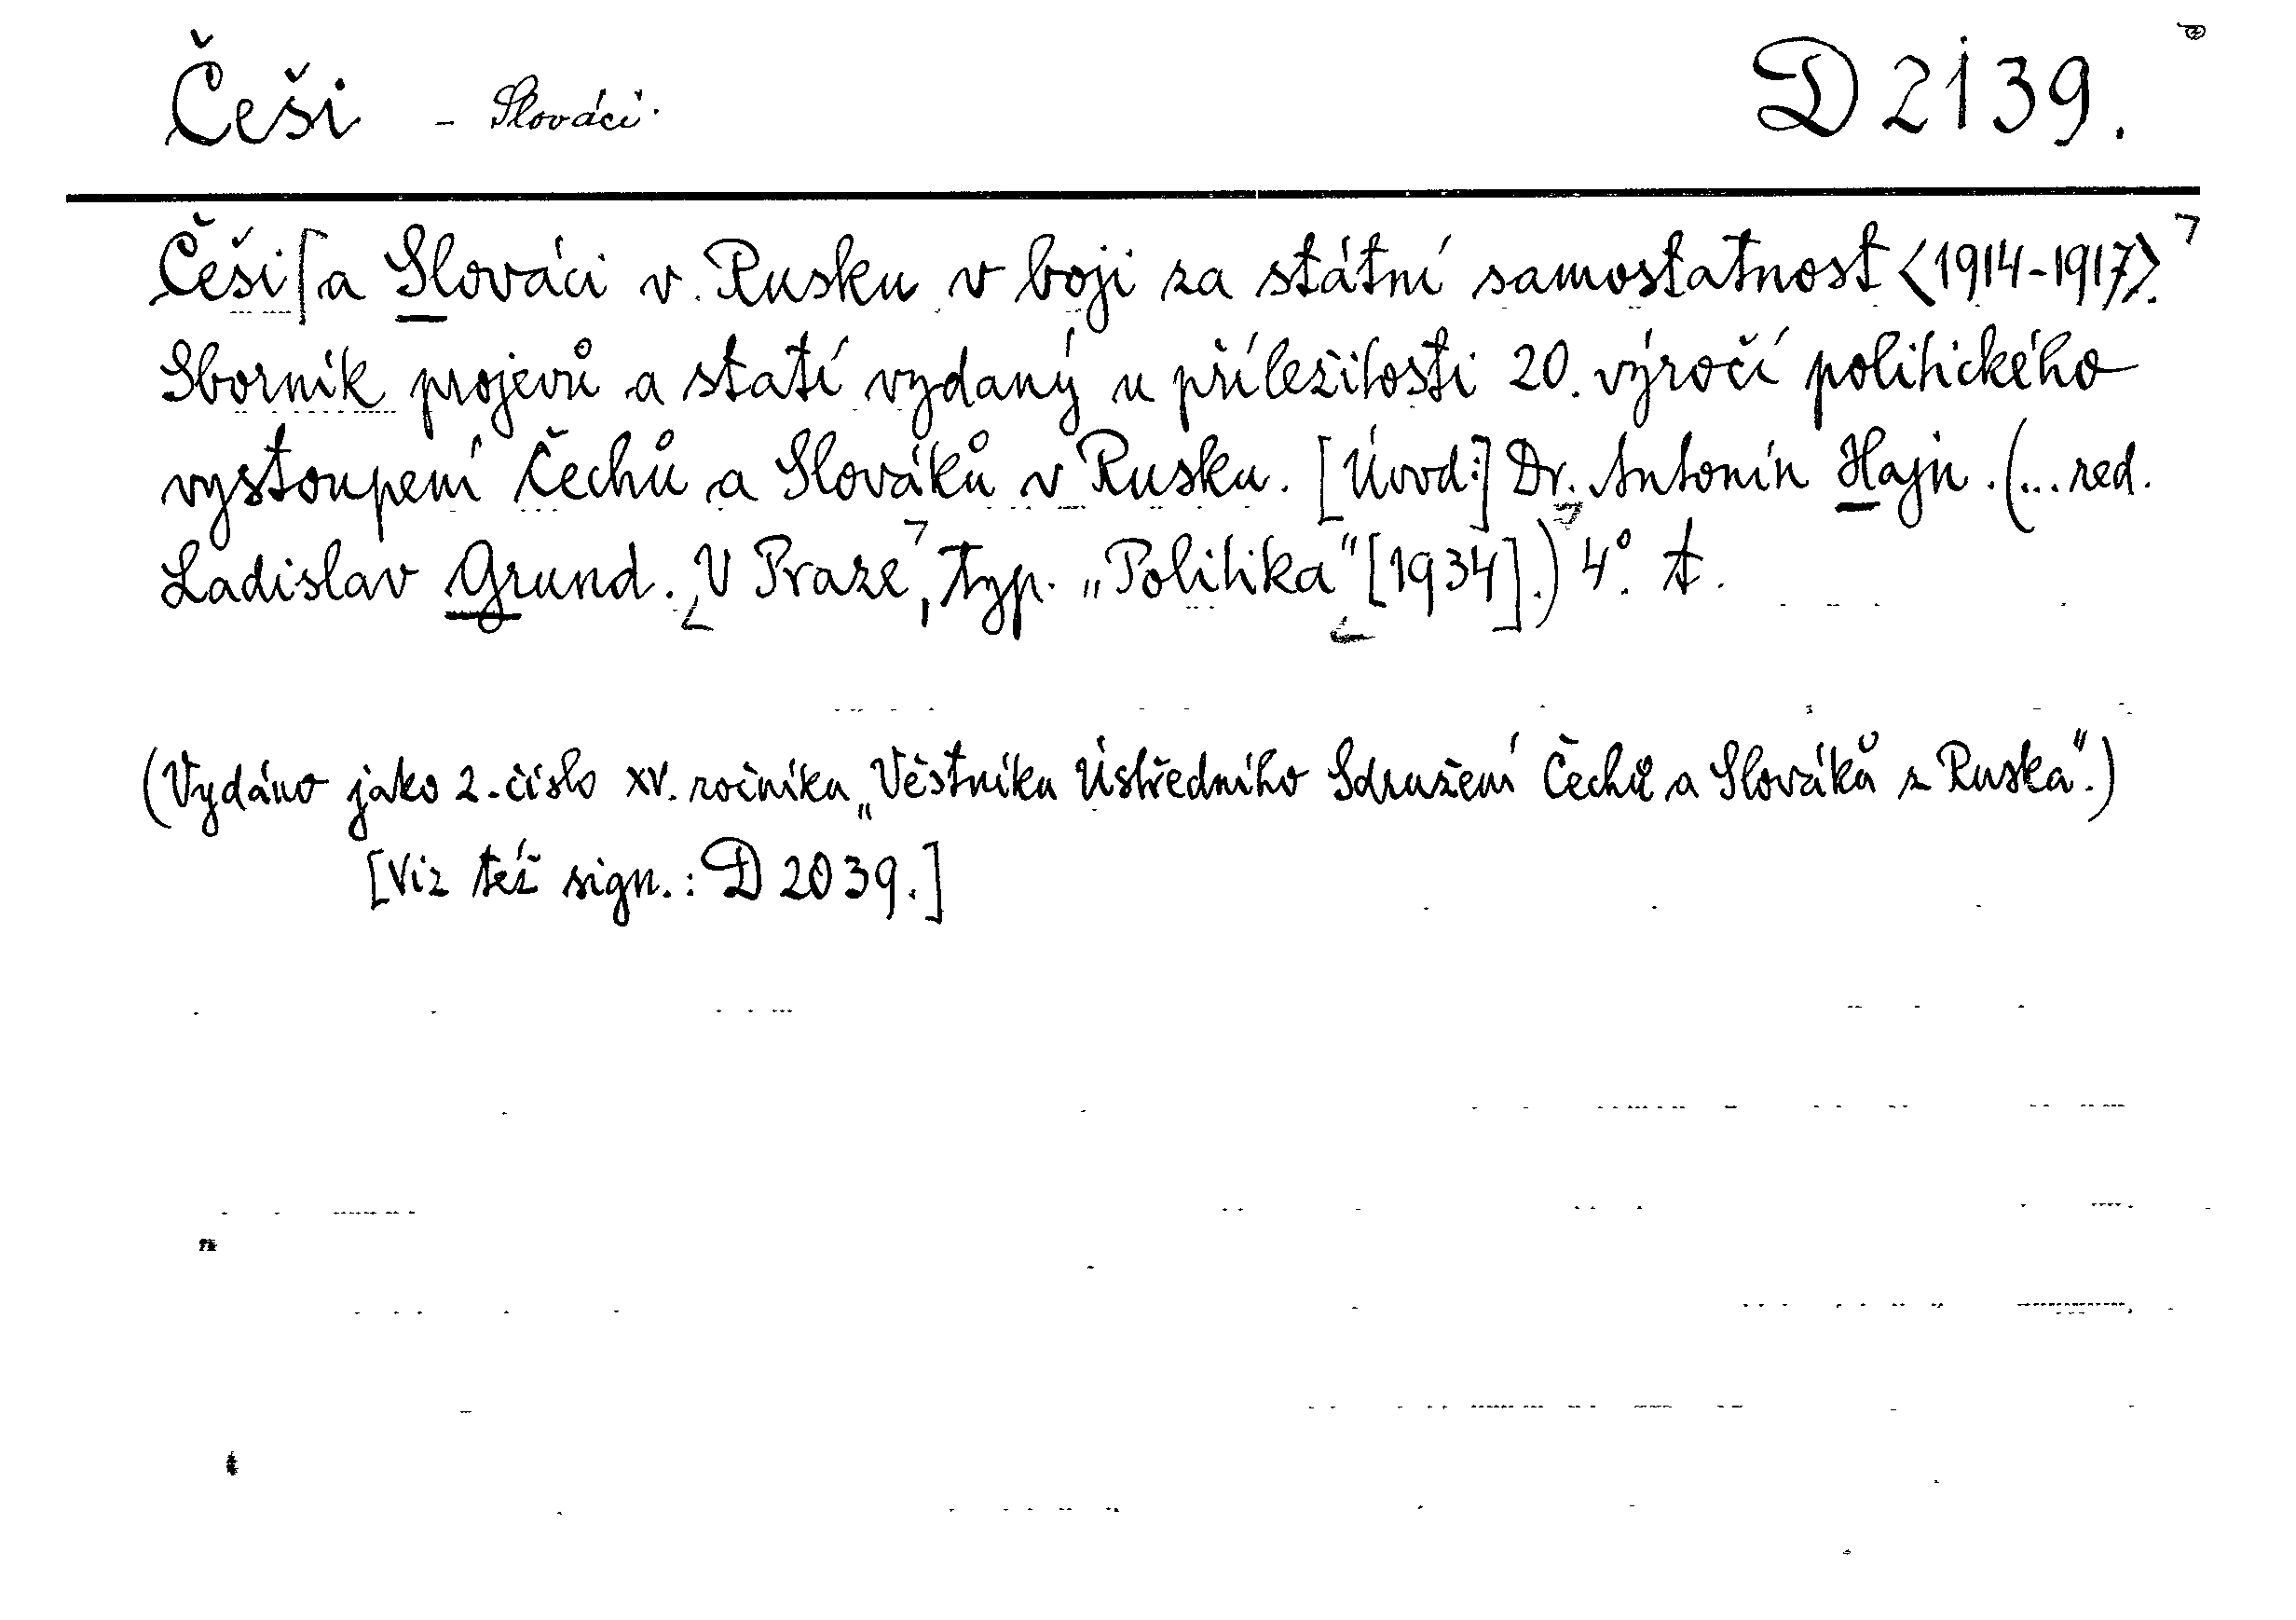 Češi - Slováci. D 2139.
Češi[a Slováci v Rusku v boji za státní samostatnost <1914-1917>.
Sborník projevů a statí vydaný u příležitosti 20. výročí politického
vystoupení Čechů a Slováků v Rusku. [Úvod:] Dr. Antonín Hajn. (... red.
Ladislav Grund. V Praze, typ. „Politika“ [1934].) 4°.
(Vydáno jako 2. číslo XV. ročníku „Věstníku Ústředního Sdružení Čechů a Slováků z Ruska“.)
[Viz též sign.: D 2039.]